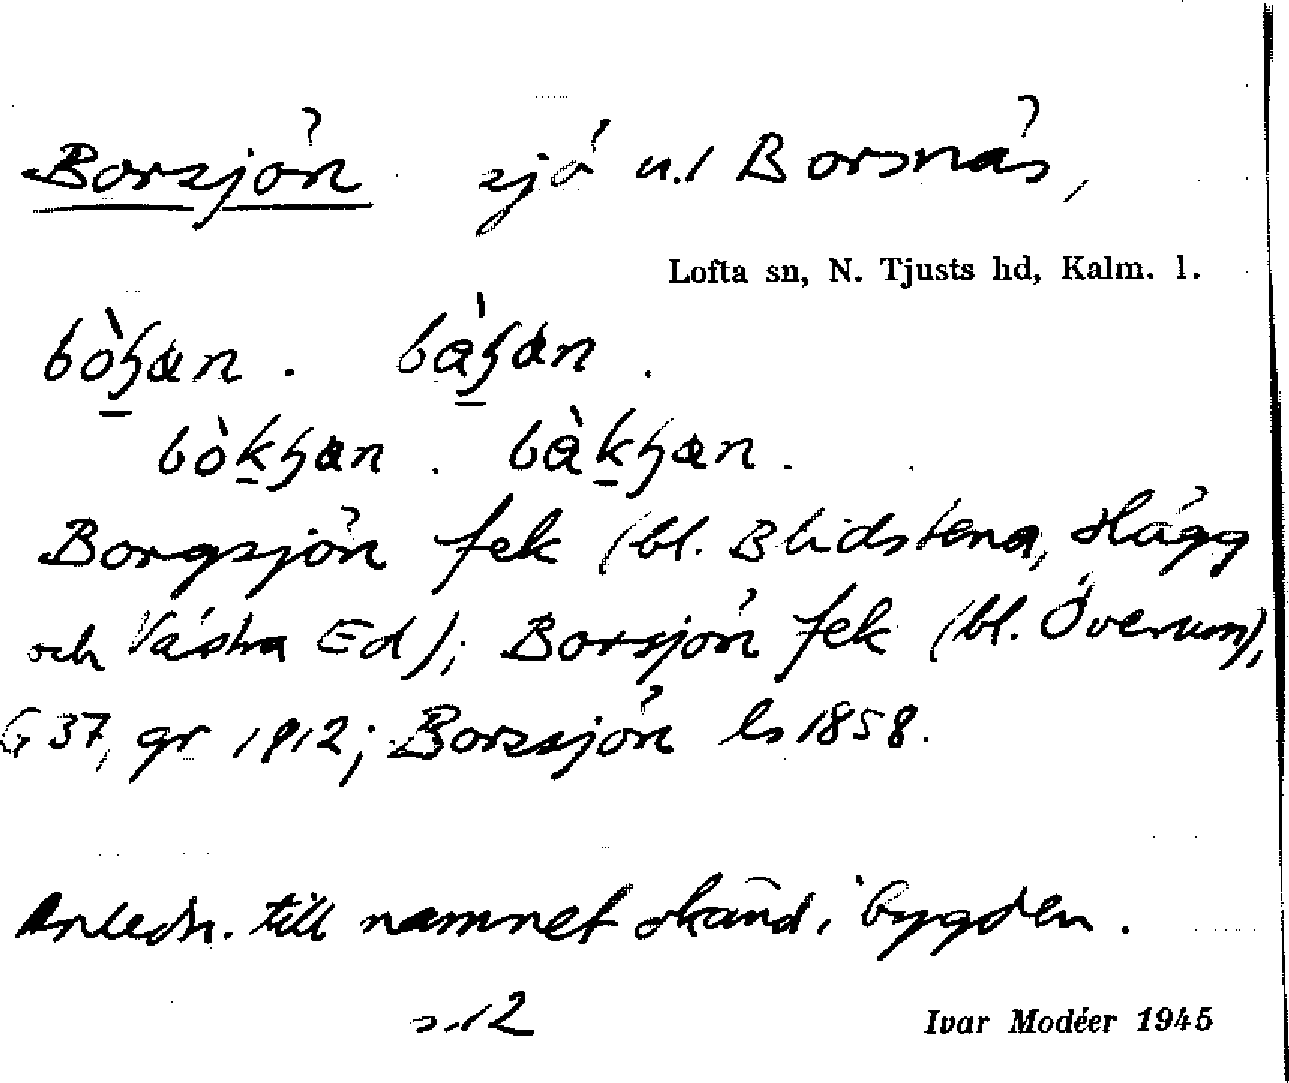 Borsjön sjö v.l Borsnäs,
Lofta sn, N. Tjusts hd, Kalm. l.
Borgsjön fek (bl. Blidstena, Hägg
och Västra Ed); Borsjön fek (bl. Överum),
G 37, gr 1912; Borssjön ls 1858.
Anledn. till namnet okänd i bygden.
s. 12
Ivar Modéer 1945